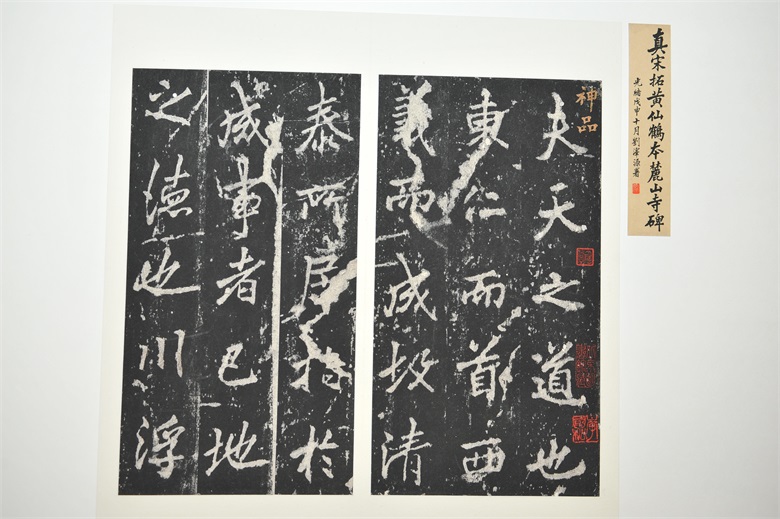 真宋拓黄仙鶴本麓山寺碑
光緒戊申十月劉
神品
夫天之道也
東仁而首西
義而成故清
泰所居指於
成事者已地
之德也川浮